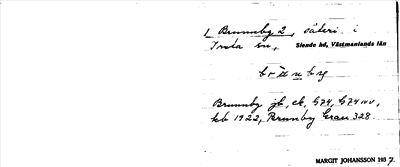 1 Brunnby 2, säteri i
Irsta sn, Siende hd, Västmanlands län
brŭnbg
Brunnby jb, ek, G74, G74 uv,
kb 1922, Brunby Grau 328
MARGIT JOHANSSON 1937.